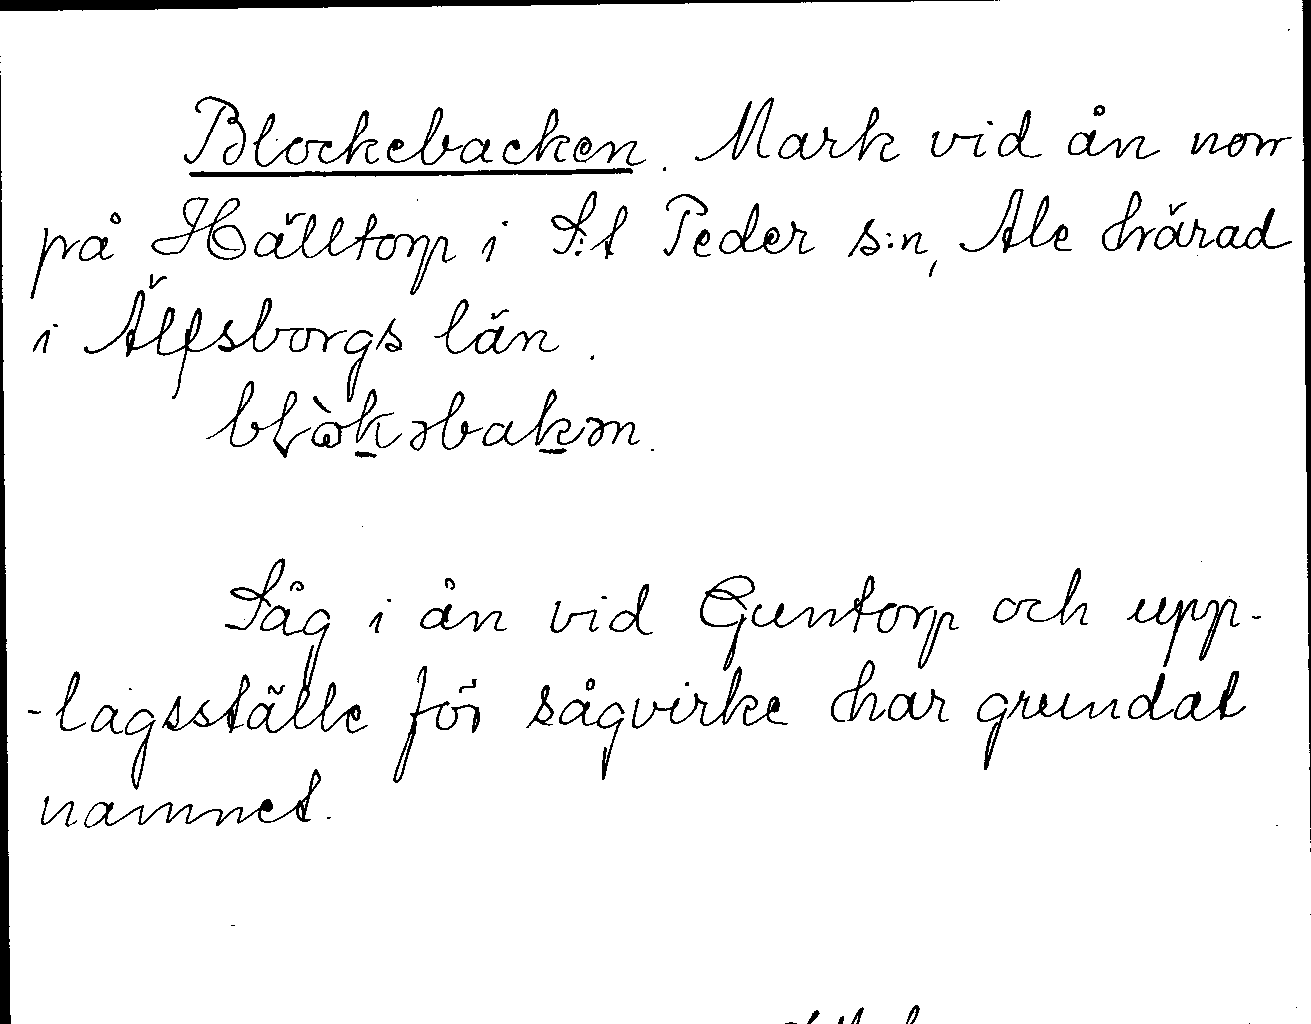 Blockebacken. Mark vid ån norr
på Hälltorp i S:t Peder s:n, Ale härad
i Älfsborgs län.
Såg i ån vid Guntorp och upp-
-lagsställe för sågvirke har grundat
namnet.